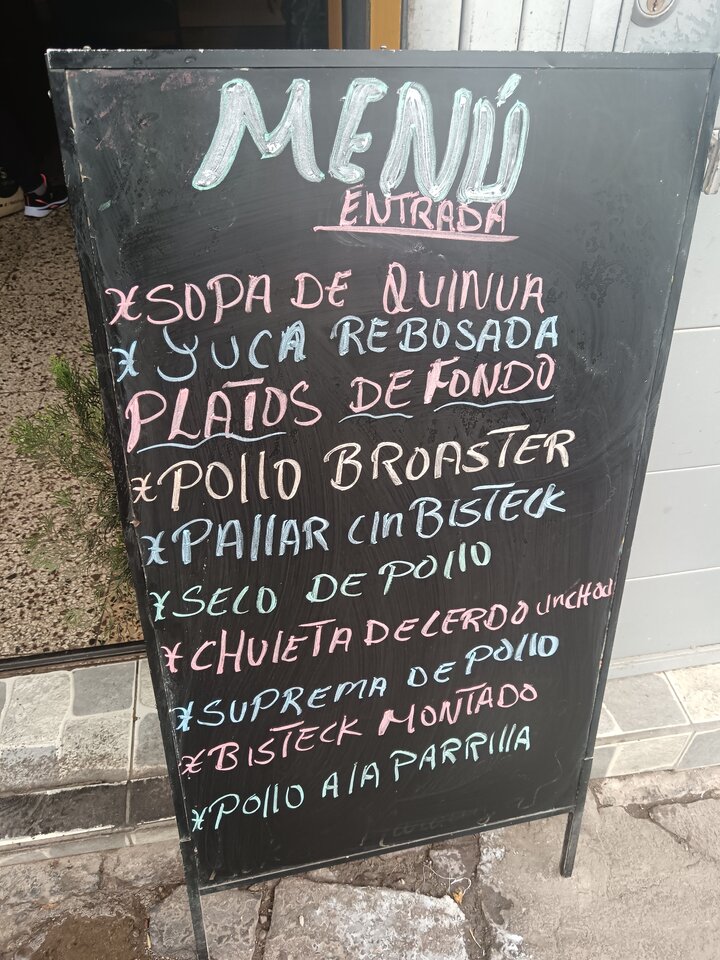 MENÚ
ENTRADA
*SOPA DE QUINUA
*YUCA REBOSADA
PLATOS DE FONDO
*POllO BROASTER
*PAllAR c/n BISTECK
*SECO DE POllO
*CHULETA DE CERDO c/n CHOC
*SUPREMA DE POllO
*BISTECK MONTADO
*POllO A lA PARRIllA